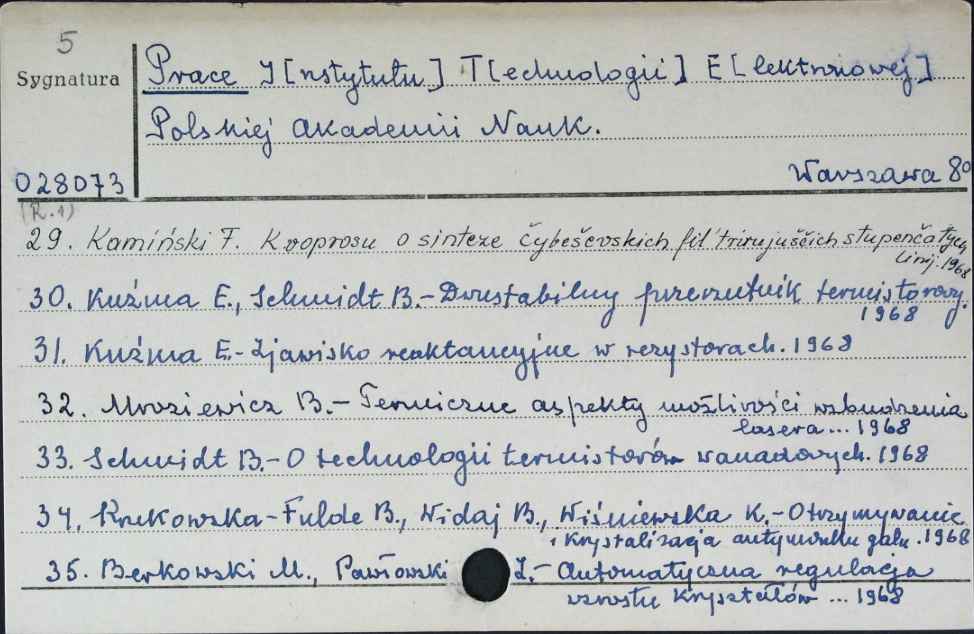 5
Sygnatura
Prace I[nstytutu] T[echnologii] E[lektronowej]
Polskiej Akademii Nauk.
028073
Warszawa 8°
(R.1)
29. Kamiński F. K voprosu o sinteze čybeševskich fil'trirujuščich stupenčatych
linij. 1968
30. Kuźma E., Schmidt B.- Dwustabilny przerzutnik termistorowy.
1968
31. Kuźma E.- Zjawisko reaktancyjne w rezystorach. 1968
32. Mroziewicz B.- Termiczne aspekty możliwości wzbudzenia
lasera ... 1968
33. Schmidt B.- O technologii termistorów wanadowych. 1968
34. Krukowska-Fulde B., Widaj B., Wiśniewska K.- Otrzymywanie
i krystalizacja antymonku galu. 1968
35. Berkowski M., Pawłowski Z.- Automatyczna regulacja
wzrostu kryształów ... 1968